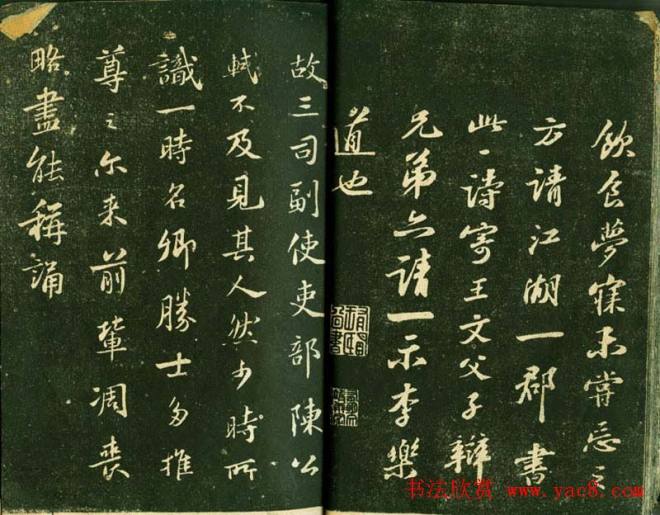 飲食夢寐未嘗忘之
方請江湖一郡書
此一詩寄王文父子辯
兄弟亦請一示李樂
道也
故三司副使吏部陳公
軾不及見其人然少時所
識一時名卿勝士多推
尊之尔来前輩凋喪
略盡能稱誦
书法欣赏 www.yac8.com